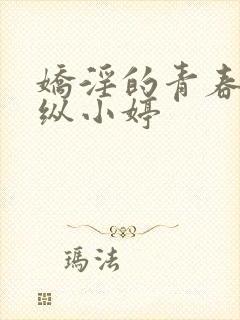 嬌淫的青春
纵小婷
瑪法